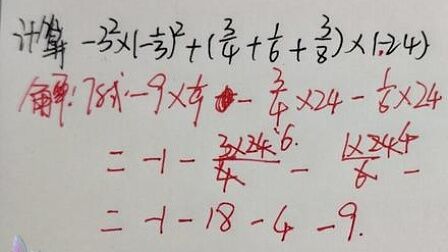 计算 -3²×(-1/3)²+(3/4+1/6+3/8)×(-24)
解:原式=-9×1/9-3/4×24-1/6×24
=-1-3×24/4 6-1×24/6 4-
=-1-18-4-9.